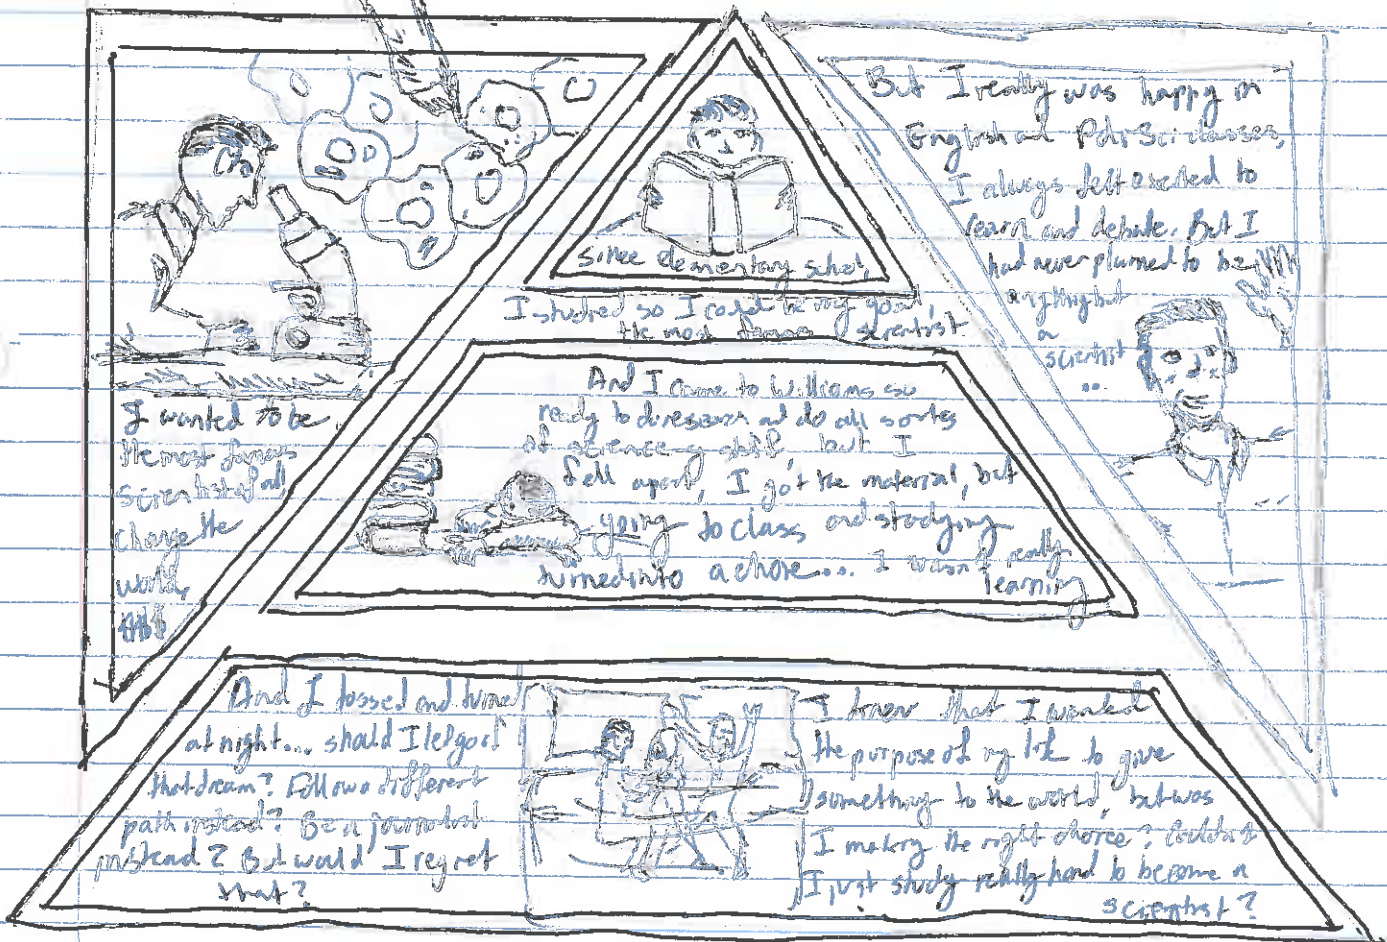 I wanted to be
the most famous
scientist of all
change the
world,
since elementary school,
I studied so I could be very good,
the most famous scientist
And I came to Williams so
ready to do research and do all sortes
of science-y stuff, but I
fell apart, I got the material, but
going to class and studying
turned into a chore... I wasn't really
learning
But I really was happy in
English and Poli Sci classes,
I always felt excited to
learn and debate. But I
had never planned to be
anything but
a
scientist
...
And I tossed and turned
at night... should I let go of
that dream? Follow a different
path instead? Be a journalist
instead? But would I regret
that?
I knew that I wanted
the purpose of my life to give
something to the world, but was
I making the right choice? Couldn't
I just study really hard to become a
scientist?